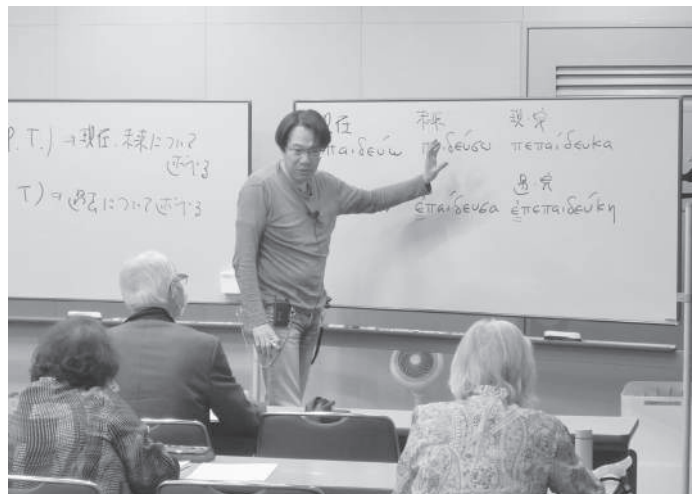 P.T.) → 現在、未来について
述べる
T) → 過去について述べる
現在 未来 現・完
παιδεύω παιδεύσω πεπαίδευκα
過・完
ἐπαίδευσα ἐπεπαιδεύκη